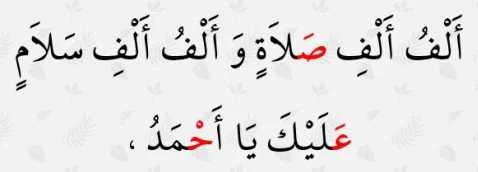 أَلْفُ أَلْفِ صَلاَةٍ وَ أَلْفُ أَلْفِ سَلاَمٍ
عَلَيْكَ يَا أَحْمَدُ ،